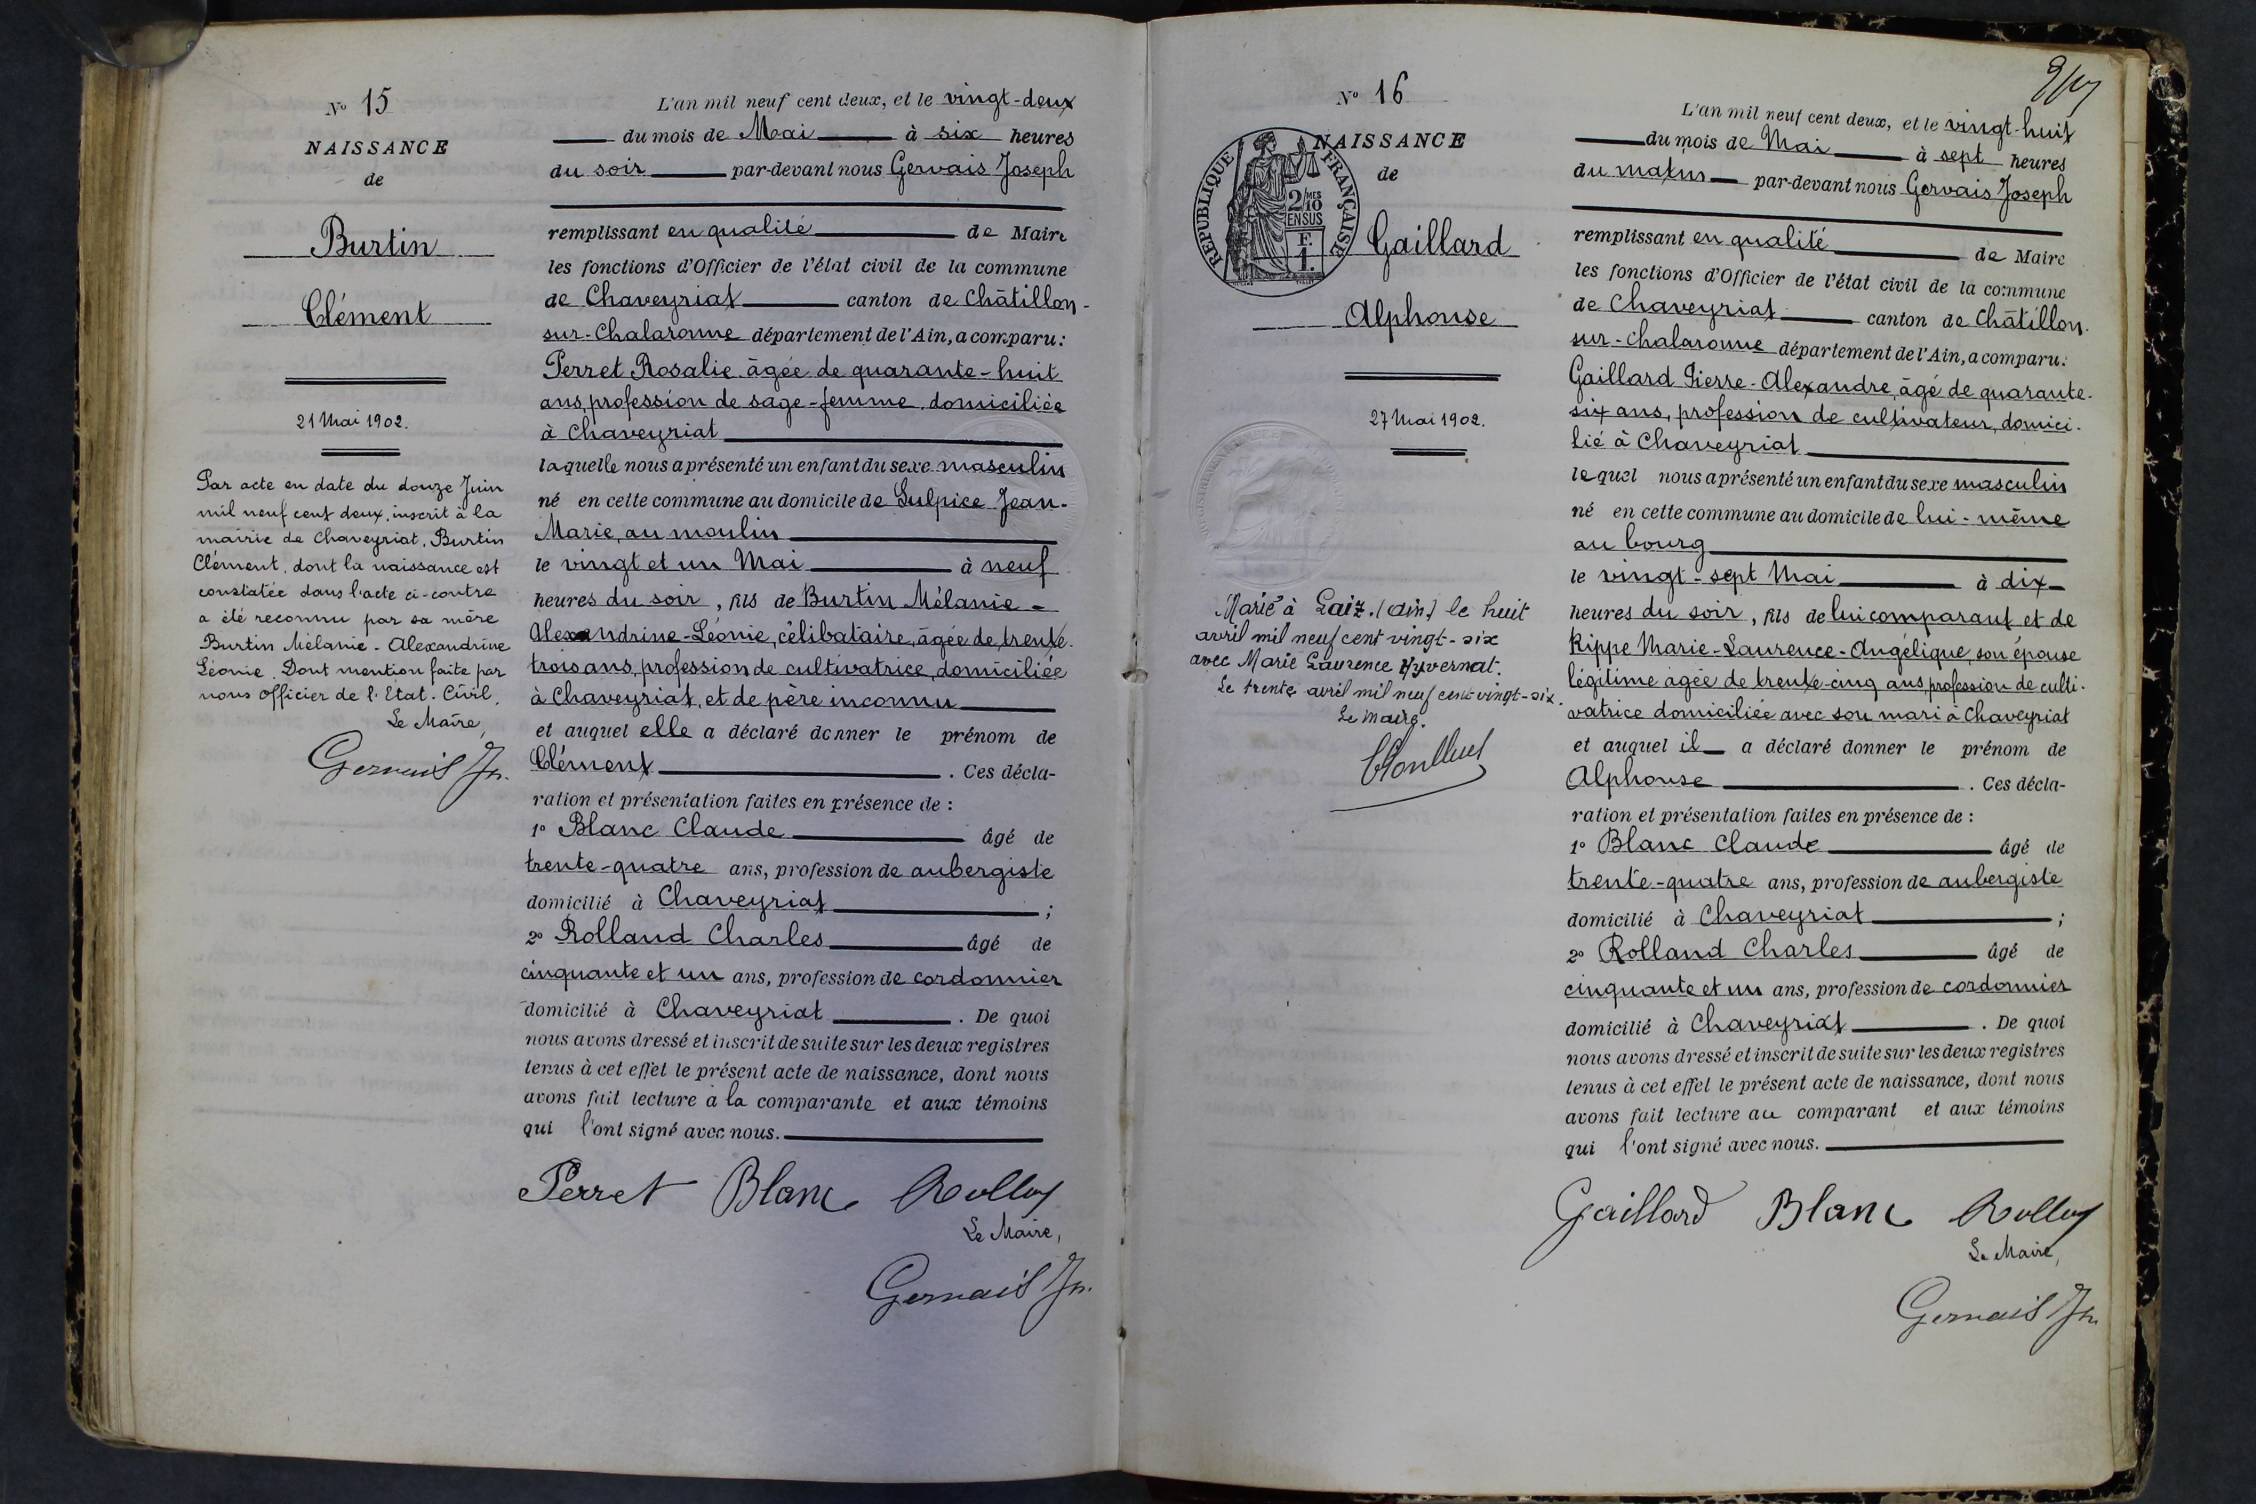 N° 15
NAISSANCE
de
Burtin
Clément
21 Mai 1902.
Par acte en date du douze Juin
mil neuf cent deux, inscrit à la
mairie de Chaveyriat, Burtin
Clément, dont la naissance est
constatée dans l'acte ci-contre
a été reconnu par sa mère
Burtin Mélanie-Alexandrine
Léonie. Dont mention faite par
nous officier de l'Etat-Civil.
Le Maire,
Gervais Jh.
L'an mil neuf cent deux, et le vingt-deux
du mois de Mai à six heures
du soir par-devant nous Gervais Joseph
remplissant en qualité de Maire
les fonctions d'Officier de l'état civil de la commune
de Chaveyriat canton de Châtillon-
sur-Chalaronne département de l'Ain, a comparu:
Perret Rosalie âgée de quarante-huit
ans, profession de sage-femme, domiciliée
à Chaveyriat
laquelle nous a présenté un enfant du sexe masculin
né en cette commune au domicile de Sulpice Jean-
Marie, au moulin
le vingt et un Mai à neuf
heures du soir, fils de Burtin Mélanie-
Alexandrine-Léonie, célibataire, âgée de trente-
trois ans, profession de cultivatrice, domiciliée
à Chaveyriat, et de père inconnu
et auquel elle a déclaré donner le prénom de
Clément. Ces décla-
ration et présentation faites en présence de :
1° Blanc Claude âgé de
trente-quatre ans, profession de aubergiste
domicilié à Chaveyriat ;
2° Rolland Charles âgé de
cinquante et un ans, profession de cordonnier
domicilié à Chaveyriat. De quoi
nous avons dressé et inscrit de suite sur les deux registres
tenus à cet effet le présent acte de naissance, dont nous
avons fait lecture à la comparante et aux témoins
qui l'ont signé avec nous.
Perret Blanc
Le Maire,
Gervais Jh.
N° 16
NAISSANCE
de
RÉPUBLIQUE FRANÇAISE
2/10MES
EN SUS
F.
1.
Gaillard
Alphonse
27 Mai 1902.
Marié à Laiz (Ain) le huit
avril mil neuf cent vingt-six
avec Marie Laurence Hyvernat.
Le trente avril mil neuf cent vingt-six.
Le Maire.
L'an mil neuf cent deux, et le vingt-huit
du mois de Mai à sept heures
du matin par-devant nous Gervais Joseph
remplissant en qualité de Maire
les fonctions d'Officier de l'état civil de la commune
de Chaveyriat canton de Châtillon-
sur-Chalaronne département de l'Ain, a comparu:
Gaillard Pierre-Alexandre, âgé de quarante-
six ans, profession de cultivateur, domici-
lié à Chaveyriat
lequel nous a présenté un enfant du sexe masculin
né en cette commune au domicile de lui-même
au bourg
le vingt-sept Mai à dix
heures du soir, fils de lui comparant et de
Rippe Marie-Laurence-Angélique, son épouse
légitime âgée de trente-cinq ans, profession de culti-
vatrice domiciliée avec son mari à Chaveyriat
et auquel il a déclaré donner le prénom de
Alphonse. Ces décla-
ration et présentation faites en présence de :
1° Blanc Claude âgé de
trente-quatre ans, profession de aubergiste
domicilié à Chaveyriat ;
2° Rolland Charles âgé de
cinquante et un ans, profession de cordonnier
domicilié à Chaveyriat. De quoi
nous avons dressé et inscrit de suite sur les deux registres
tenus à cet effet le présent acte de naissance, dont nous
avons fait lecture au comparant et aux témoins
qui l'ont signé avec nous.
Gaillard Blanc
Le Maire,
Gervais Jh.